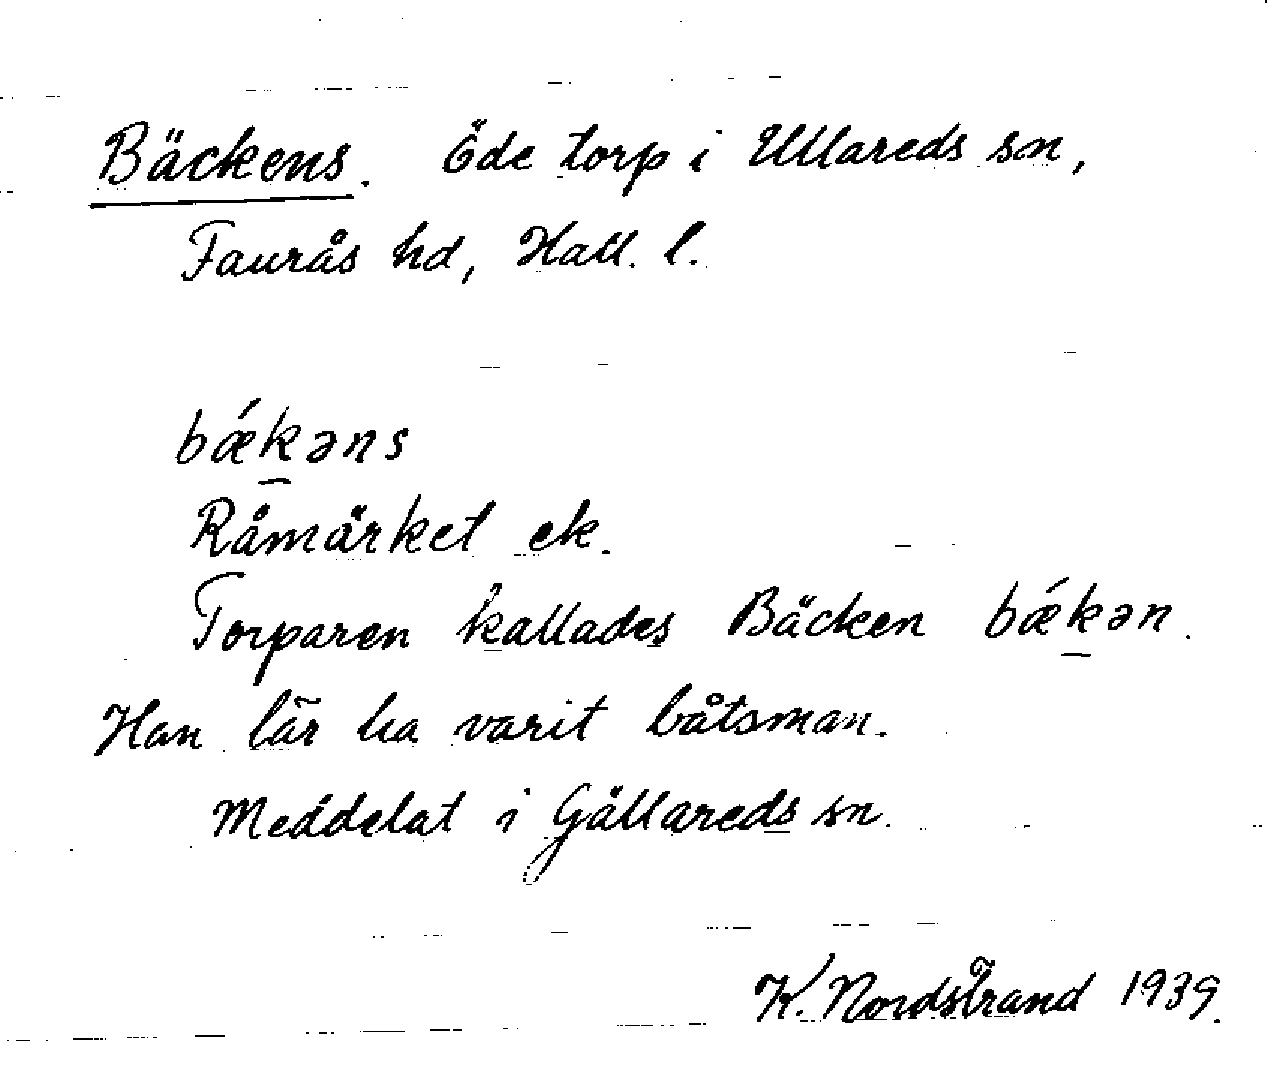 Bäckens. Öde torp i Ullareds sn,
Faurås hd, Hall. l.
bǽk̲əns
Råmärket ek.
Torparen kallades Bäcken bǽk̲ən.
Han lär ha varit båtsman.
Meddelat i Gällareds sn.
K. Nordstrand 1939.